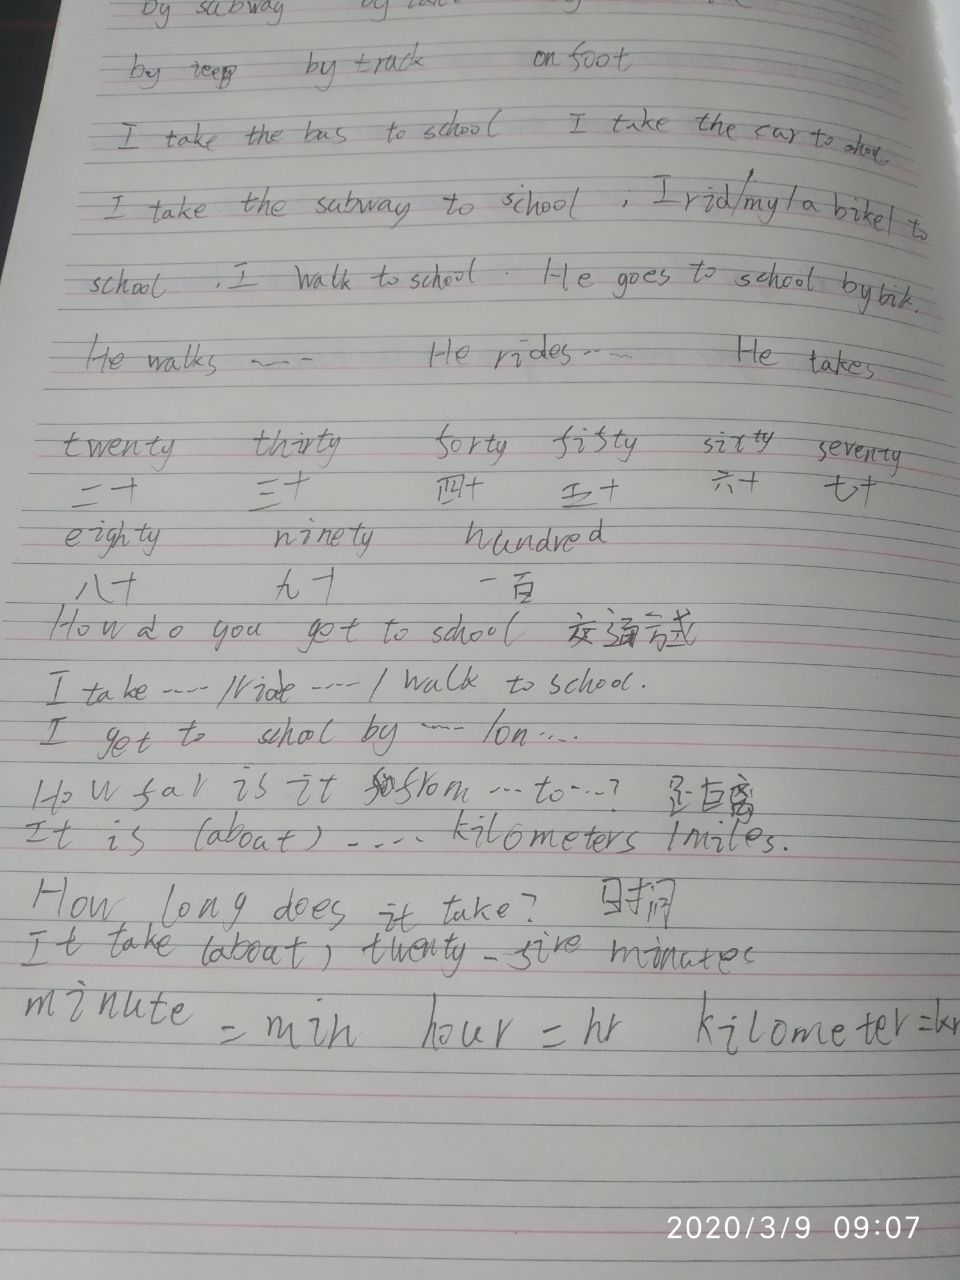 by subway
by on foot by track
I take the bus to school I take the car to
I take the subway to school , I rid/my/a bike/ to
school . I walk to school . He goes to school by bik.
He walks ---- He rides ---- He takes
twenty thirty forty fifty sixty seventy
二十 三十 四十 五十 六十 七十
eighty ninety hundred
八十 九十 一百
How do you get to school 交通方式
I take ---- /ride ---- / walk to school.
I get to school by ---- /on ....
How far is it from ... to ...? 距离
It is (about) ---- kilometers /miles.
How long does it take? 时间
It take (about) twenty-five minutes
minute = min hour = hr kilometer =
2020/3/9 09:07